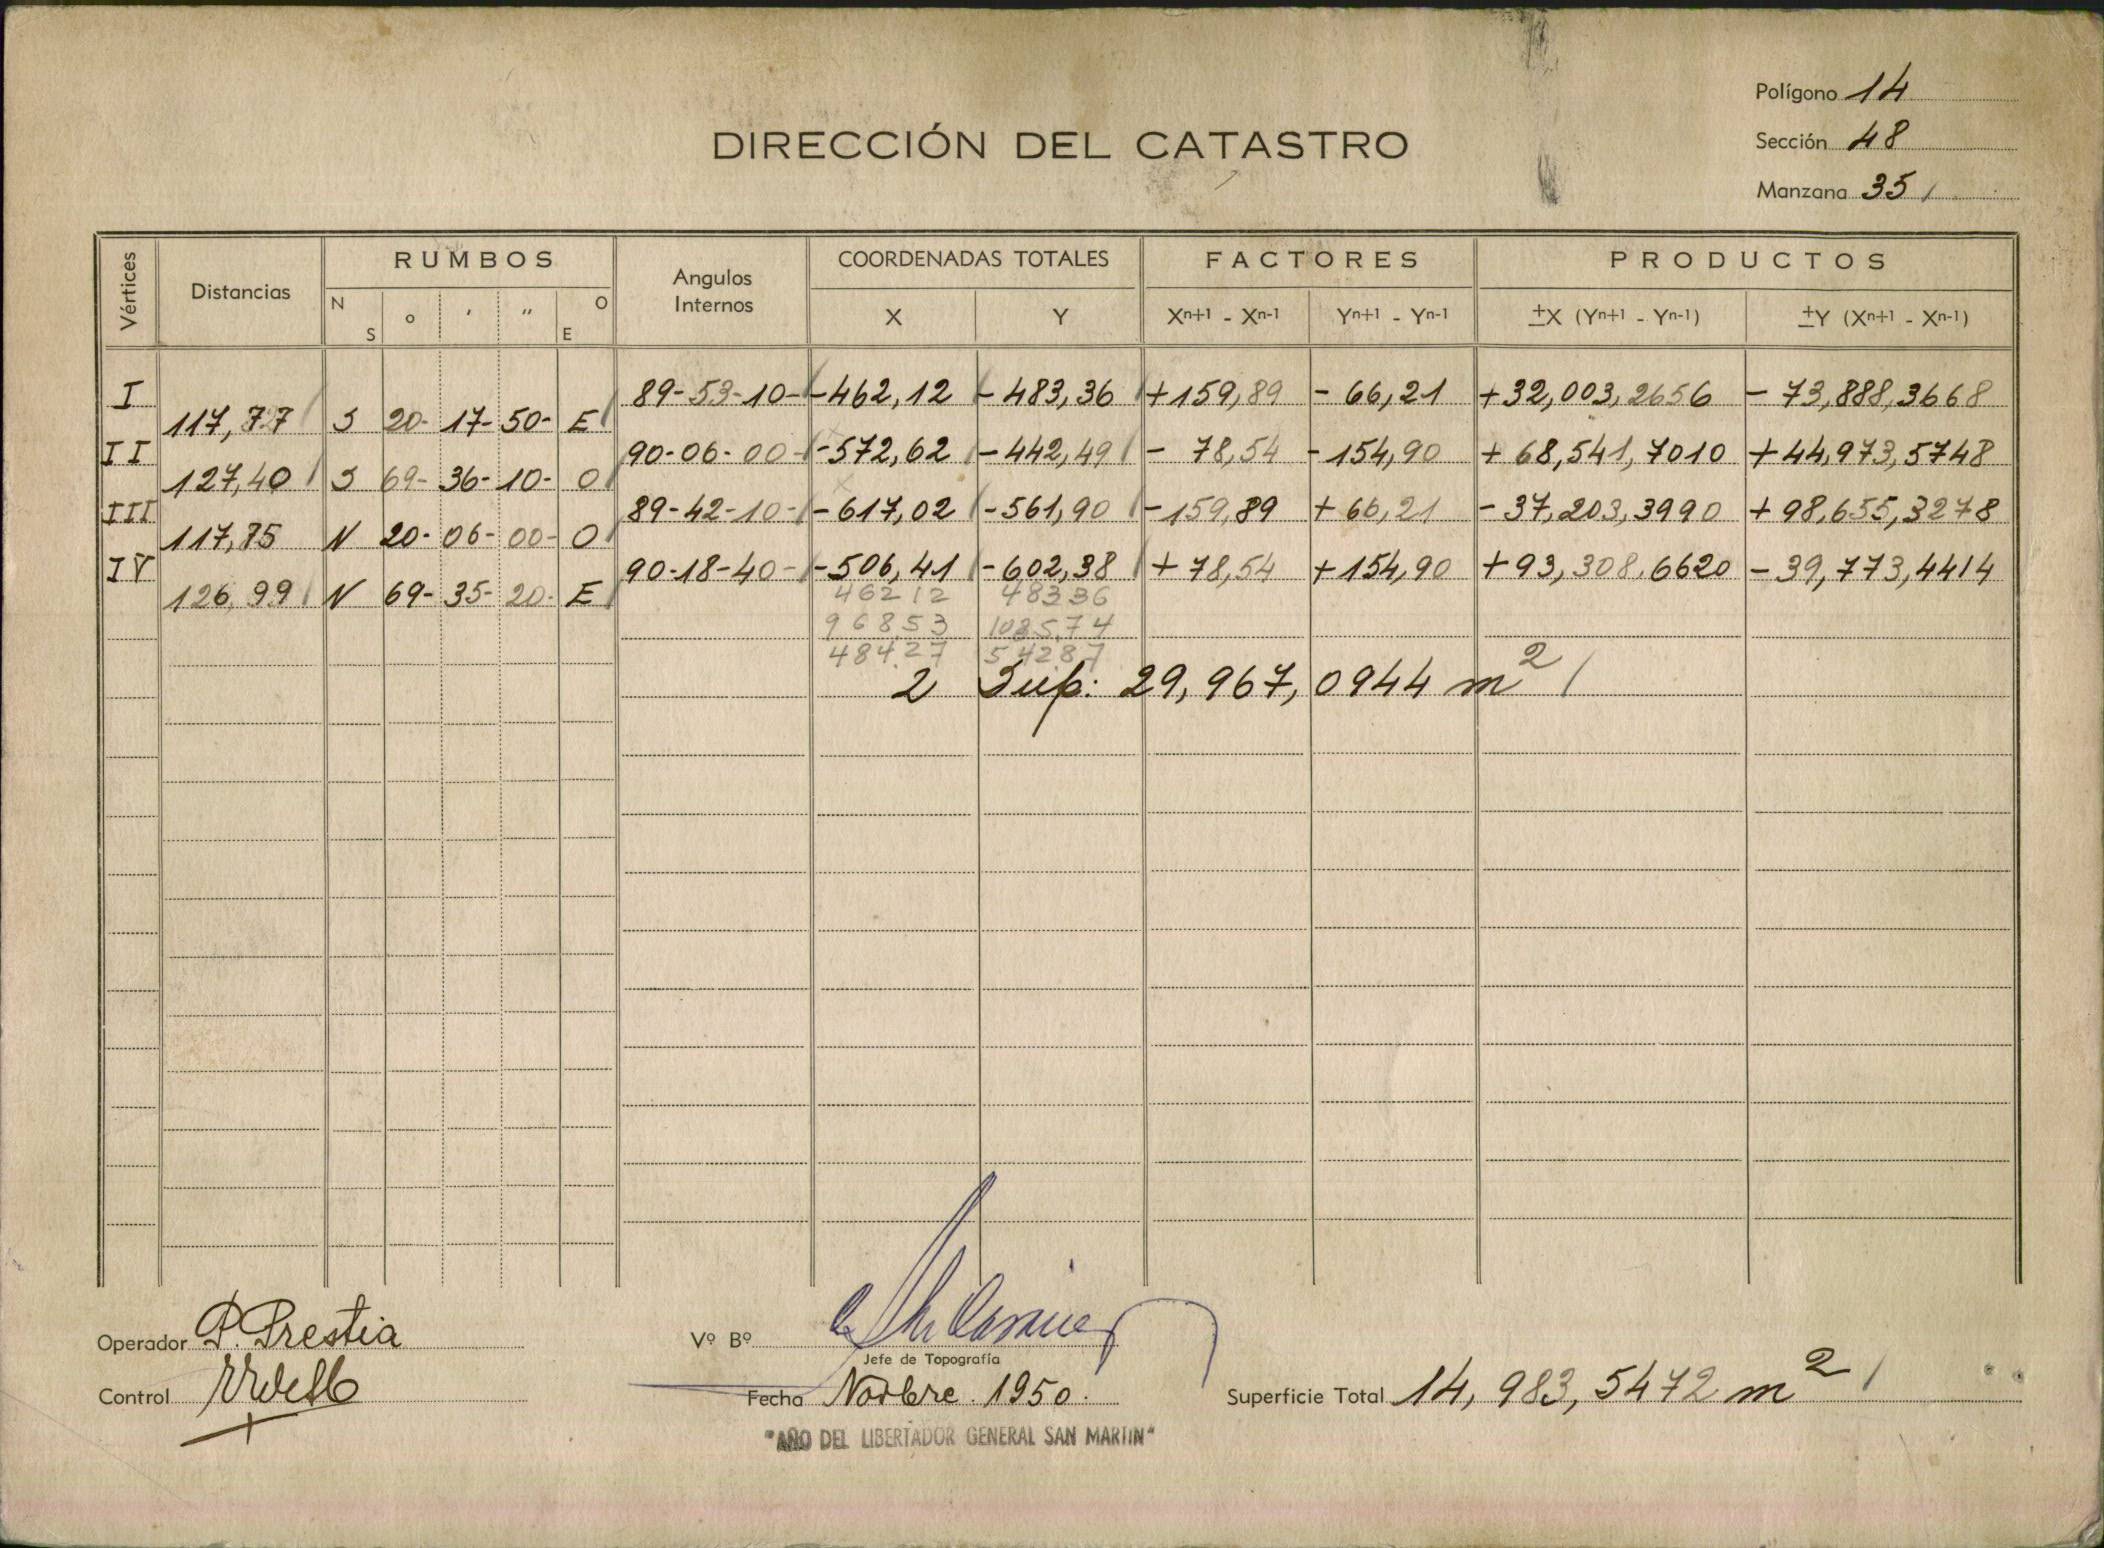 Polígono 14
DIRECCIÓN DEL CATASTRO
Sección 48
Manzana 35
Vértices Distancias RUMBOS Angulos Internos COORDENADAS TOTALES FACTORES PRODUCTOS
N S o ′ ″ O E X Y Xn+1 - Xn-1 Yn+1 - Yn-1 ±X (Yn+1 - Yn-1) ±Y (Xn+1 - Xn-1)
I 89-53-10- -462,12 -483,36 +159,89 - 66,21 +32,003,2656 - 73,888,3668
117,77 S 20- 17- 50- E
II 90-06-00- -572,62 -442,49 - 78,54 -154,90 + 68,541,7010 + 44,973,5748
127,40 S 69- 36- 10- O
III 89-42-10- -617,02 -561,90 -159,89 + 66,21 - 37,203,3990 + 98,655,3278
117,85 N 20- 06- 00- O
IV 90-18-40- -506,41 -602,38 + 78,54 +154,90 +93,308,6620 - 39,773,4414
126,99 N 69- 35- 20- E
46212 48336
968,53 1085,74
484,27 542,87
2 Sup: 29,967,0944 m2
Operador P. Prestia
Vº Bº
Jefe de Topografía
Control
Fecha Novbre. 1950.
Superficie Total 14,983,5472 m2
"AÑO DEL LIBERTADOR GENERAL SAN MARTIN"